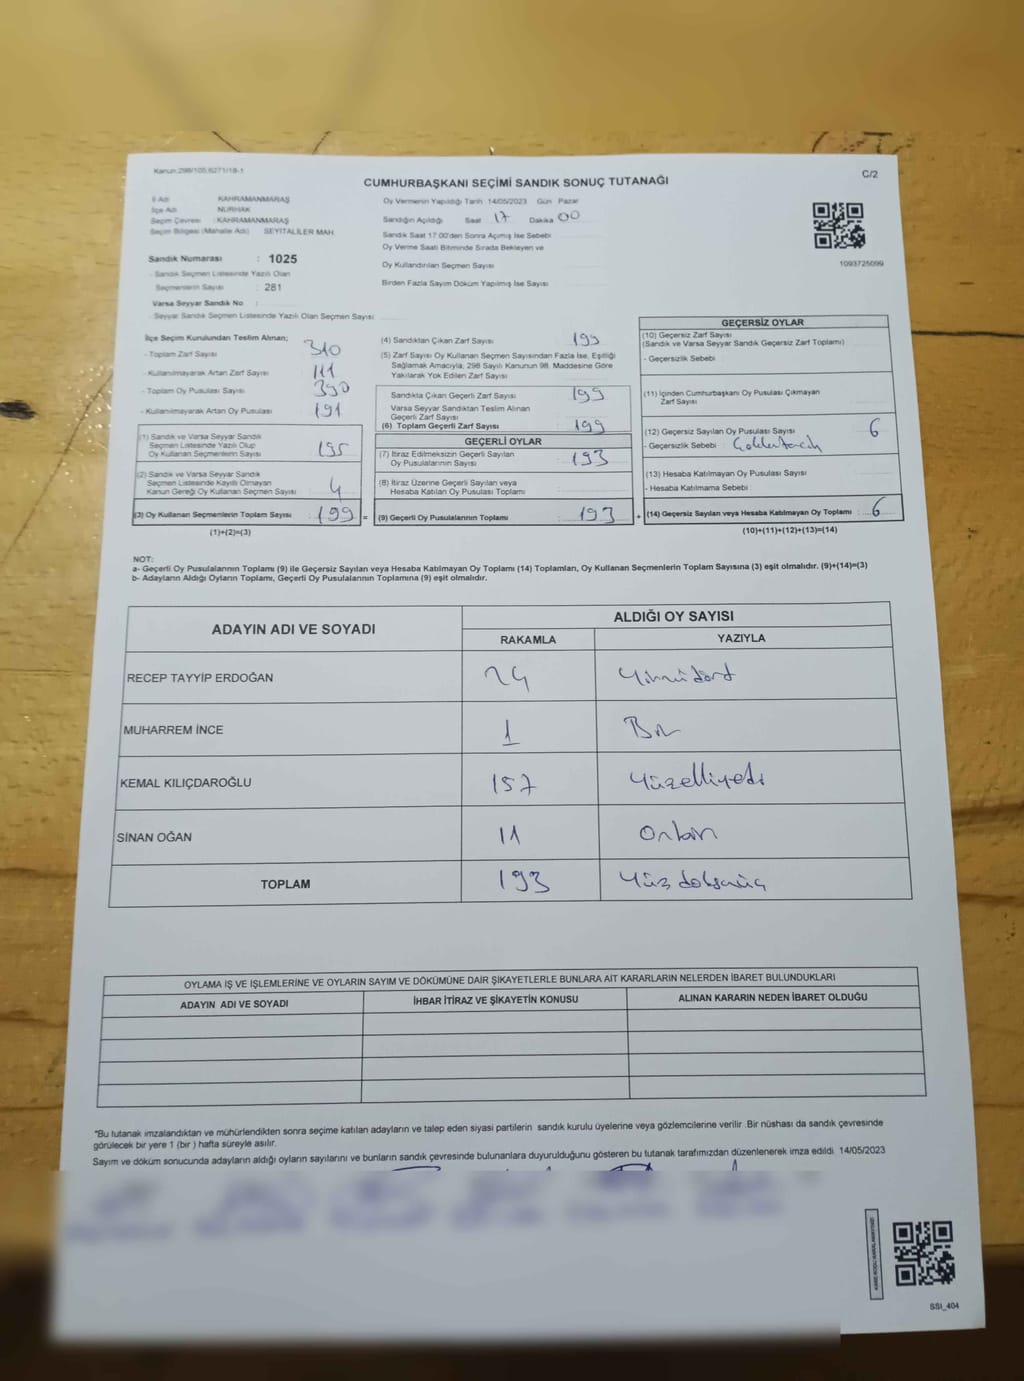 Kanun:298/105;6271/18-1
CUMHURBAŞKANI SEÇİMİ SANDIK SONUÇ TUTANAĞI
C/2
İl Adı KAHRAMANMARAŞ
İlçe Adı NURHAK
Seçim Çevresi : KAHRAMANMARAŞ
Seçim Bölgesi (Mahalle Adı) SEYİTALİLER MAH.
Sandık Numarası : 1025
- Sandık Seçmen Listesinde Yazılı Olan
Seçmenlerin Sayısı : 281
Varsa Seyyar Sandık No :
- Seyyar Sandık Seçmen Listesinde Yazılı Olan Seçmen Sayısı
Oy Vermenin Yapıldığı Tarih 14/05/2023 Gün Pazar
Sandığın Açıldığı Saat 17 Dakika 00
Sandık Saat 17:00'den Sonra Açımış İse Sebebi
Oy Verme Saati Bitiminde Sırada Bekleyen ve
Oy Kullandırılan Seçmen Sayısı
Birden Fazla Sayım Döküm Yapılmış İse Sayısı
1093725099
İlçe Seçim Kurulundan Teslim Alınan;
- Toplam Zarf Sayısı 310
- Kullanılmayarak Artan Zarf Sayısı 111
- Toplam Oy Pusulası Sayısı 390
- Kullanılmayarak Artan Oy Pusulası 191
(1) Sandık ve Varsa Seyyar Sandık
Seçmen Listesinde Yazılı Olup
Oy Kullanan Seçmenlerin Sayısı 195
(2) Sandık ve Varsa Seyyar Sandık
Seçmen Listesinde Kayıtlı Olmayan
Kanun Gereği Oy Kullanan Seçmen Sayısı 4
(3) Oy Kullanan Seçmenlerin Toplam Sayısı : 199 =
(1)+(2)=(3)
(4) Sandıktan Çıkan Zarf Sayısı 199
(5) Zarf Sayısı Oy Kullanan Seçmen Sayısından Fazla İse, Eşitliği
Sağlamak Amacıyla; 298 Sayılı Kanunun 98. Maddesine Göre
Yakılarak Yok Edilen Zarf Sayısı
Sandıkta Çıkan Geçerli Zarf Sayısı 199
Varsa Seyyar Sandıktan Teslim Alınan
Geçerli Zarf Sayısı
(6) Toplam Geçerli Zarf Sayısı 199
GEÇERLİ OYLAR
(7) İtiraz Edilmeksizin Geçerli Sayılan
Oy Pusulalarının Sayısı : 193
(8) İtiraz Üzerine Geçerli Sayılan veya
Hesaba Katılan Oy Pusulası Toplamı
(9) Geçerli Oy Pusulalarının Toplamı : 193 +
GEÇERSİZ OYLAR
(10) Geçersiz Zarf Sayısı
(Sandık ve Varsa Seyyar Sandık Geçersiz Zarf Toplamı)
- Geçersizlik Sebebi
(11) İçinden Cumhurbaşkanı Oy Pusulası Çıkmayan
Zarf Sayısı
(12) Geçersiz Sayılan Oy Pusulası Sayısı 6
- Geçersizlik Sebebi :
(13) Hesaba Katılmayan Oy Pusulası Sayısı
- Hesaba Katılmama Sebebi :
(14) Geçersiz Sayılan veya Hesaba Katılmayan Oy Toplamı : 6
(10)+(11)+(12)+(13)=(14)
NOT:
a- Geçerli Oy Pusulalarının Toplamı (9) ile Geçersiz Sayılan veya Hesaba Katılmayan Oy Toplamı (14) Toplamları, Oy Kullanan Seçmenlerin Toplam Sayısına (3) eşit olmalıdır. (9)+(14)=(3)
b- Adayların Aldığı Oyların Toplamı, Geçerli Oy Pusulalarının Toplamına (9) eşit olmalıdır.
ADAYIN ADI VE SOYADI ALDIĞI OY SAYISI
RAKAMLA YAZIYLA
RECEP TAYYİP ERDOĞAN 24 Yirmidört
MUHARREM İNCE 1 Bir
KEMAL KILIÇDAROĞLU 157 Yüzelliyedi
SİNAN OĞAN 11 Onbir
TOPLAM 193 Yüz doksanüç
OYLAMA İŞ VE İŞLEMLERİNE VE OYLARIN SAYIM VE DÖKÜMÜNE DAİR ŞİKAYETLERLE BUNLARA AİT KARARLARIN NELERDEN İBARET BULUNDUKLARI
ADAYIN ADI VE SOYADI İHBAR İTİRAZ VE ŞİKAYETİN KONUSU ALINAN KARARIN NEDEN İBARET OLDUĞU
"Bu tutanak imzalandıktan ve mühürlendikten sonra seçime katılan adayların ve talep eden siyasi partilerin sandık kurulu üyelerine veya gözlemcilerine verilir .Bir nüshası da sandık çevresinde
görülecek bir yere 1 (bir ) hafta süreyle asılır.
Sayım ve döküm sonucunda adayların aldığı oyların sayılarını ve bunların sandık çevresinde bulunanlara duyurulduğunu gösteren bu tutanak tarafımızdan düzenlenerek imza edildi. 14/05/2023
SSI_404